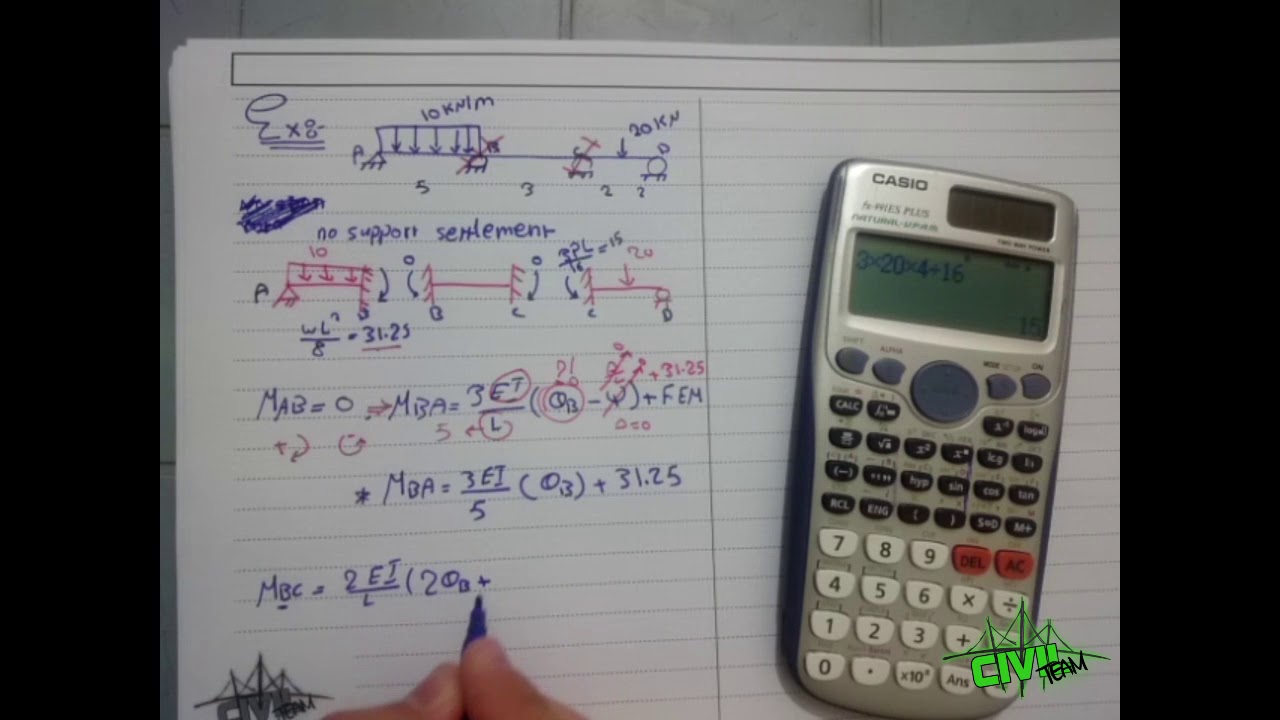 Ex 8-
10 KN/m
20 KN
A B C D
5 3 2 2
no support settlement
10 0 0 3PL/16 = 15 20
A B B C C D
wL²/8 = 31.25
MAB = 0 ⇒ MBA = 3EI/L (θB - Ψ) + FEM
+31.25
5
Δ=0
* MBA = 3EI/5 (θB) + 31.25
MBC = 2EI/L (2θB +
CASIO
fx-991ES PLUS
NATURAL-V.P.A.M.
TWO WAY POWER
3×20×4÷16
15
SHIFT ALPHA MODE SETUP ON
CALC
hyp sin cos tan
RCL ENG ( ) S⇔D M+
7 8 9 DEL AC
4 5 6 × ÷
1 2 3 +
0 . ×10ˣ Ans
CIVIL TEAM
CIVIL TEAM